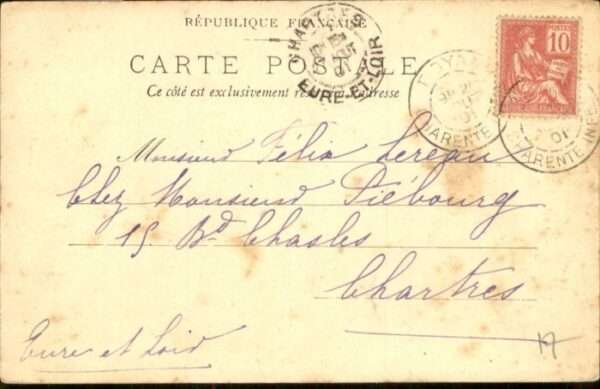 RÉPUBLIQUE FRANÇAISE
CARTE POSTALE
Ce côté est exclusivement réservé à l'adresse
CHARTRES
EURE-ET-LOIR
10
ROYAN
CHARENTE INFRE
01
Monsieur Félix Lereau
Chez Monsieur Liébourg
15 Bd Chasles
Chartres
Eure et Loir